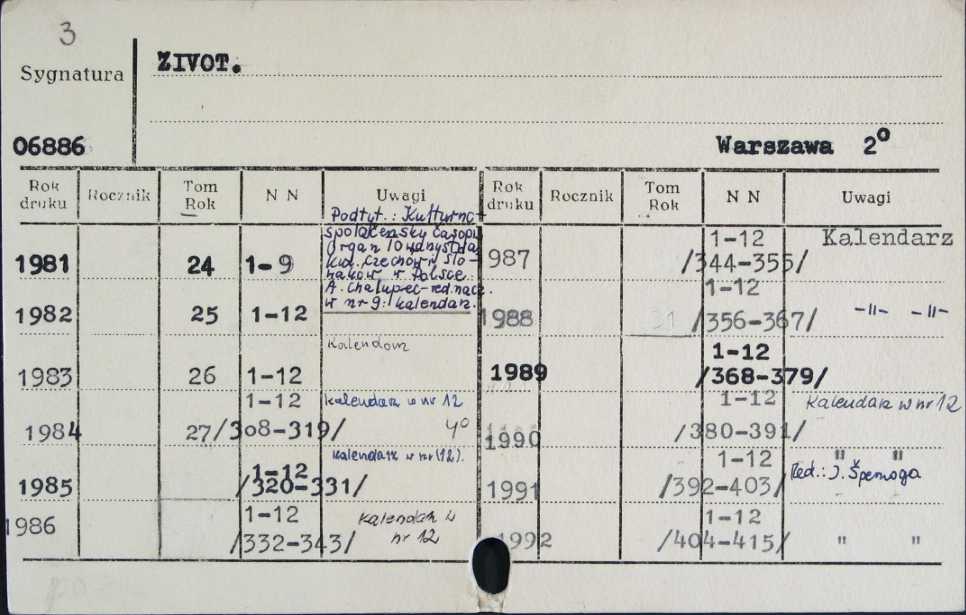 3
Sygnatura
ZIVOT.
06886
Warszawa 2°
Rok druku Rocznik Tom Rok N N Uwagi Rok druku Rocznik Tom Rok N N Uwagi
Podtyt.: Kulturno-
spoločensky časopis
Organ Towarzystwa
Kult. Czechów i Sło-
waków w Polsce.
A. Chalupec-red.nacz.
w nr 9: kalendarz.
1981 24 1-9
1982 25 1-12
Kalendarz
1983 26 1-12
1-12 Kalendarz w nr 12
1984 27 /308-319/ 4°
1-12 Kalendarz w nr (12).
1985 /320-331/
1-12 Kalendarz w
1986 /332-343/ nr 12
1-12 Kalendarz
987 /344-355/
1-12
1988 31 /356-367/ -11- -11-
1-12
1989 /368-379/
1-12 Kalendarz w nr 12
1990 /380-391/
1-12 " "
1991 /392-403/ Red.: J. Špernoga
1-12
1992 /404-415/ " "